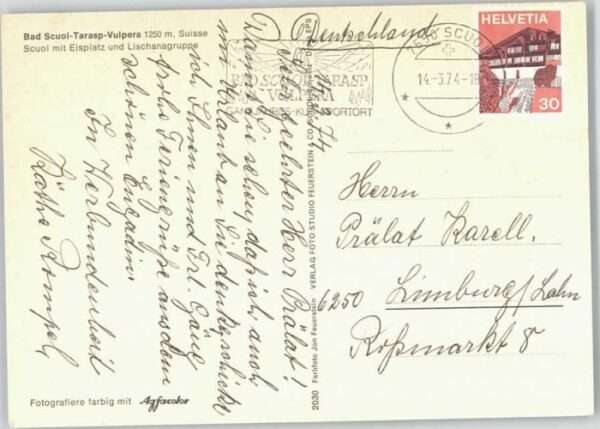 Bad Scuol-Tarasp-Vulpera 1250 m, Suisse
Scuol mit Eisplatz und Lischanagruppe
Deutschland
HELVETIA
30
BAD SCUOL
14.-3.74.-18
BAD SCUOL-TARASP
VULPERA
GANZJAHRES-KURSPORTORT
14. 3. 74
Sehr geehrter Herr Prälat!
Damit Sie sehen, daß ich auch
im Urlaub an Sie denke, schicke
ich Ihnen und Frl. Gäng
frohe Feriengrüße aus dem
schönen Engadin.
In Verbundenheit
Käthe Rompel,
Herrn
Prälat Karell.
6250 Limburg/Lahn
Roßmarkt 8
2030 Farbfoto Jon Feuerstein VERLAG FOTO STUDIO FEUERSTEIN
Fotografiere farbig mit Agfacolor